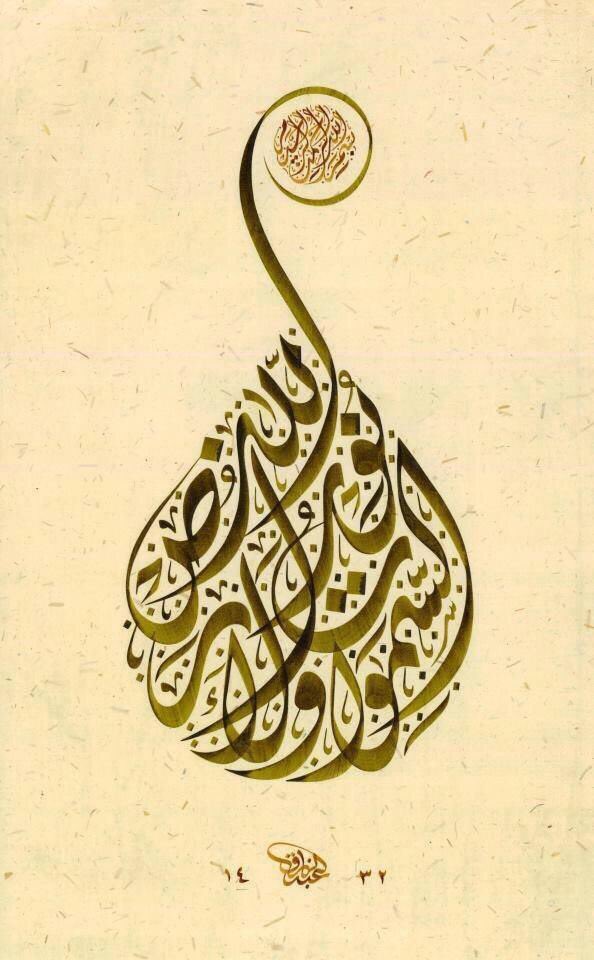 بسم الله الرحمن الرحيم
اللهُ نُورُ السَّمٰوَاتِ وَالْأَرْضِ
١٤ ٣٢